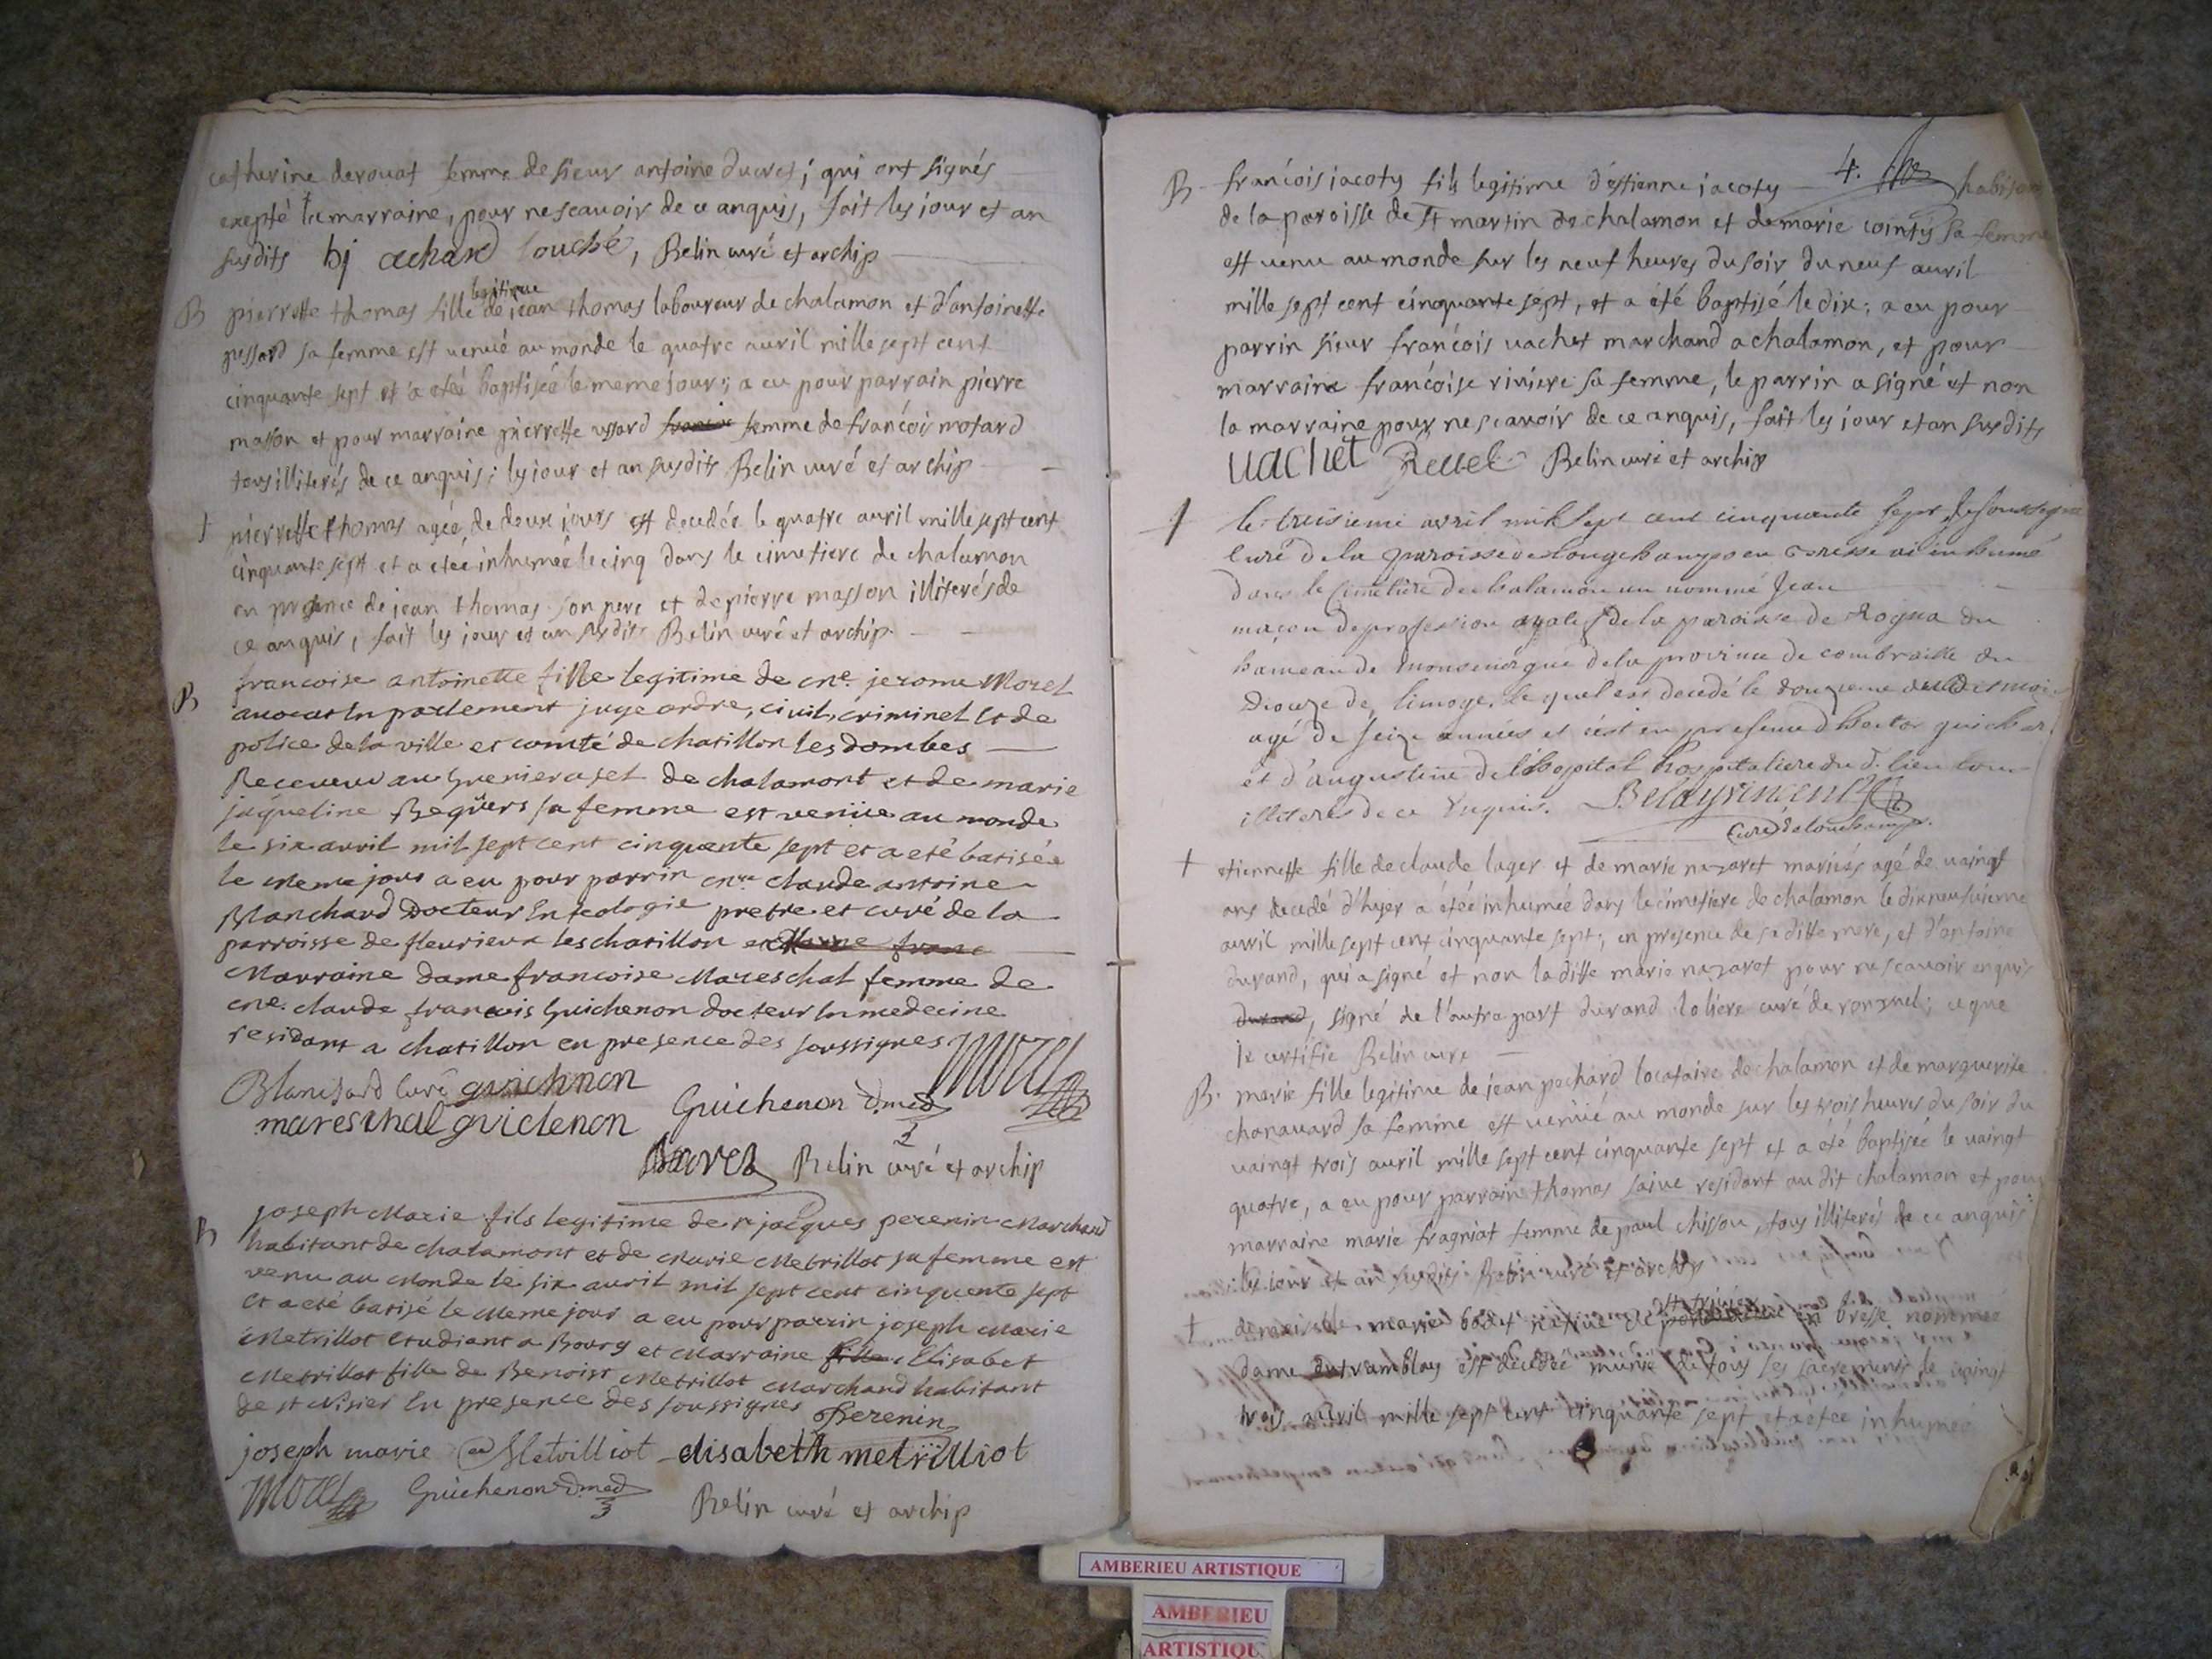 catherine derouat femme de sieur antoine ducret; qui ont signés
exepté la marraine, pour ne scavoir de ce anquis, fait les jour et an
susdits bj achard touché, Belin curé et archip
B pierrette thomas fille legitime de jean thomas laboureur de chalamon et d'antoinette
pussard sa femme est venuë au monde le quatre avril mille sept cent
cinquante sept et a eteé baptisée le meme jour; a eu pour parrain pierre
masson et pour marraine pierrette ussard femme de francois motard
tous illiterés de ce anquis; les jour et an susdits Belin curé et archip
† pierrette thomas agée de deux jours est decedée le quatre avril mille sept cent
cinquante sept et a eteé inhumeé le cinq dans le cimetiere de chalamon
en presence de jean thomas son pere et de pierre masson illiterés de
ce anquis, fait les jour et an susdits Belin curé et archip
B francoise antoinette fille legitime de cne. jerome Morel
avocat en parlement juge ordre, civil, criminel et de
police de la ville et comté de chatillon les dombes
Receveur au Grenier a sel de chalamont et de marie
jaqueline Beguers sa femme est veniie au monde
le six avril mil sept cent cinquante sept et a eté batisée
le meme jour a eu pour parrin cne claude antoine
Blanchard Docteur en teologie pretre et curé de la
parroisse de fleurieux les chatillon et
Marraine dame francoise Mareschal femme de
cne. claude francois Guichenon docteur en medecine
residant a chatillon en presence des soussignes
Blanchard curé guichnon Morel
mareschal guichenon Guichenon d.med
Belin curé et archip
B joseph Marie fils legitime de sr jacques perenin Marchand
habitant de chalamont et de Marie Metrillot sa femme est
venu au Monde le six avril mil sept cent cinquante sept
et a eté batisé le Meme jour a eu pour parrin joseph Marie
Metrillot etudiant a Bourg et Marraine Elisabet
Metrillot fille de Benoist Metrillot Marchand habitant
de st Nisier en presence des soussignes Perenin
joseph marie Metrilliot elisabeth metrilliot
Morel Guichenon d.med Belin curé et archip
4.
B francois jacoty fils legitime d'estienne jacoty habitant
de la paroisse de St martin de chalamon et de marie cointy sa femme
est venu au monde sur les neuf heures du soir du neuf avril
mille sept cent cinquante sept, et a été baptisé le dix; a eu pour
parrin sieur francois vachet marchand a chalamon, et pour
marraine francoise riviere sa femme, le parrin a signé et non
la marraine pour ne scavoir de ce anquis, fait les jour et an susdits
vachet Revel Belin curé et archip
† le treisieme avril mil sept cent cinquante sept Je soussigné
curé de la paroisse de Longchamps en Bresse ai inhumé
dans le cimetiere de chalamon un nommé Jean
maçon de profession de la paroisse de Rogna du
hameau de de la province de combraille du
diocese de limoge, le quel est decedé le douzieme
agé de seize années et c'est en presence d'hector guichar
et d'augustine de l'hopital hospitaliere du d. lieu tous
illiterés de ce Enquis.
Curé de Longchamps.
† etiennette fille de claude lager et de marie nazaret mariés agé de vaingt
ans decedé d'hyer a étéé inhumeé dans le cimetiere de chalamon le dix neufvieme
avril mille sept cent cinquante sept; en presence de sa ditte mere, et d'antoine
durand, qui a signé et non la ditte marie nazaret pour ne scavoir enquis
durand, signé de l'autre part durand toliere curé de ronzuel; ce que
je certifie Belin curé
B. marie fille legitime de jean pochard locataire de chalamon et de marguerite
chanavard sa femme est venuë au monde sur les trois heures du soir du
vaingt trois avril mille sept cent cinquante sept et a été baptisée le vaingt
quatre, a eu pour parrain thomas saive residant au dit chalamon et pour
marraine marie fragniat femme de paul chissou, tous illiterés de ce anquis
les jour et an susdits Belin curé et archip
† demoiselle marie bodet native de st trivier en bresse nommée
dame dutramblay est decedée munie de tous ses sacrements le vaingt
trois avril mille sept cent cinquante sept et a étée inhumée
AMBERIEU ARTISTIQUE
AMBERIEU
ARTISTIQU